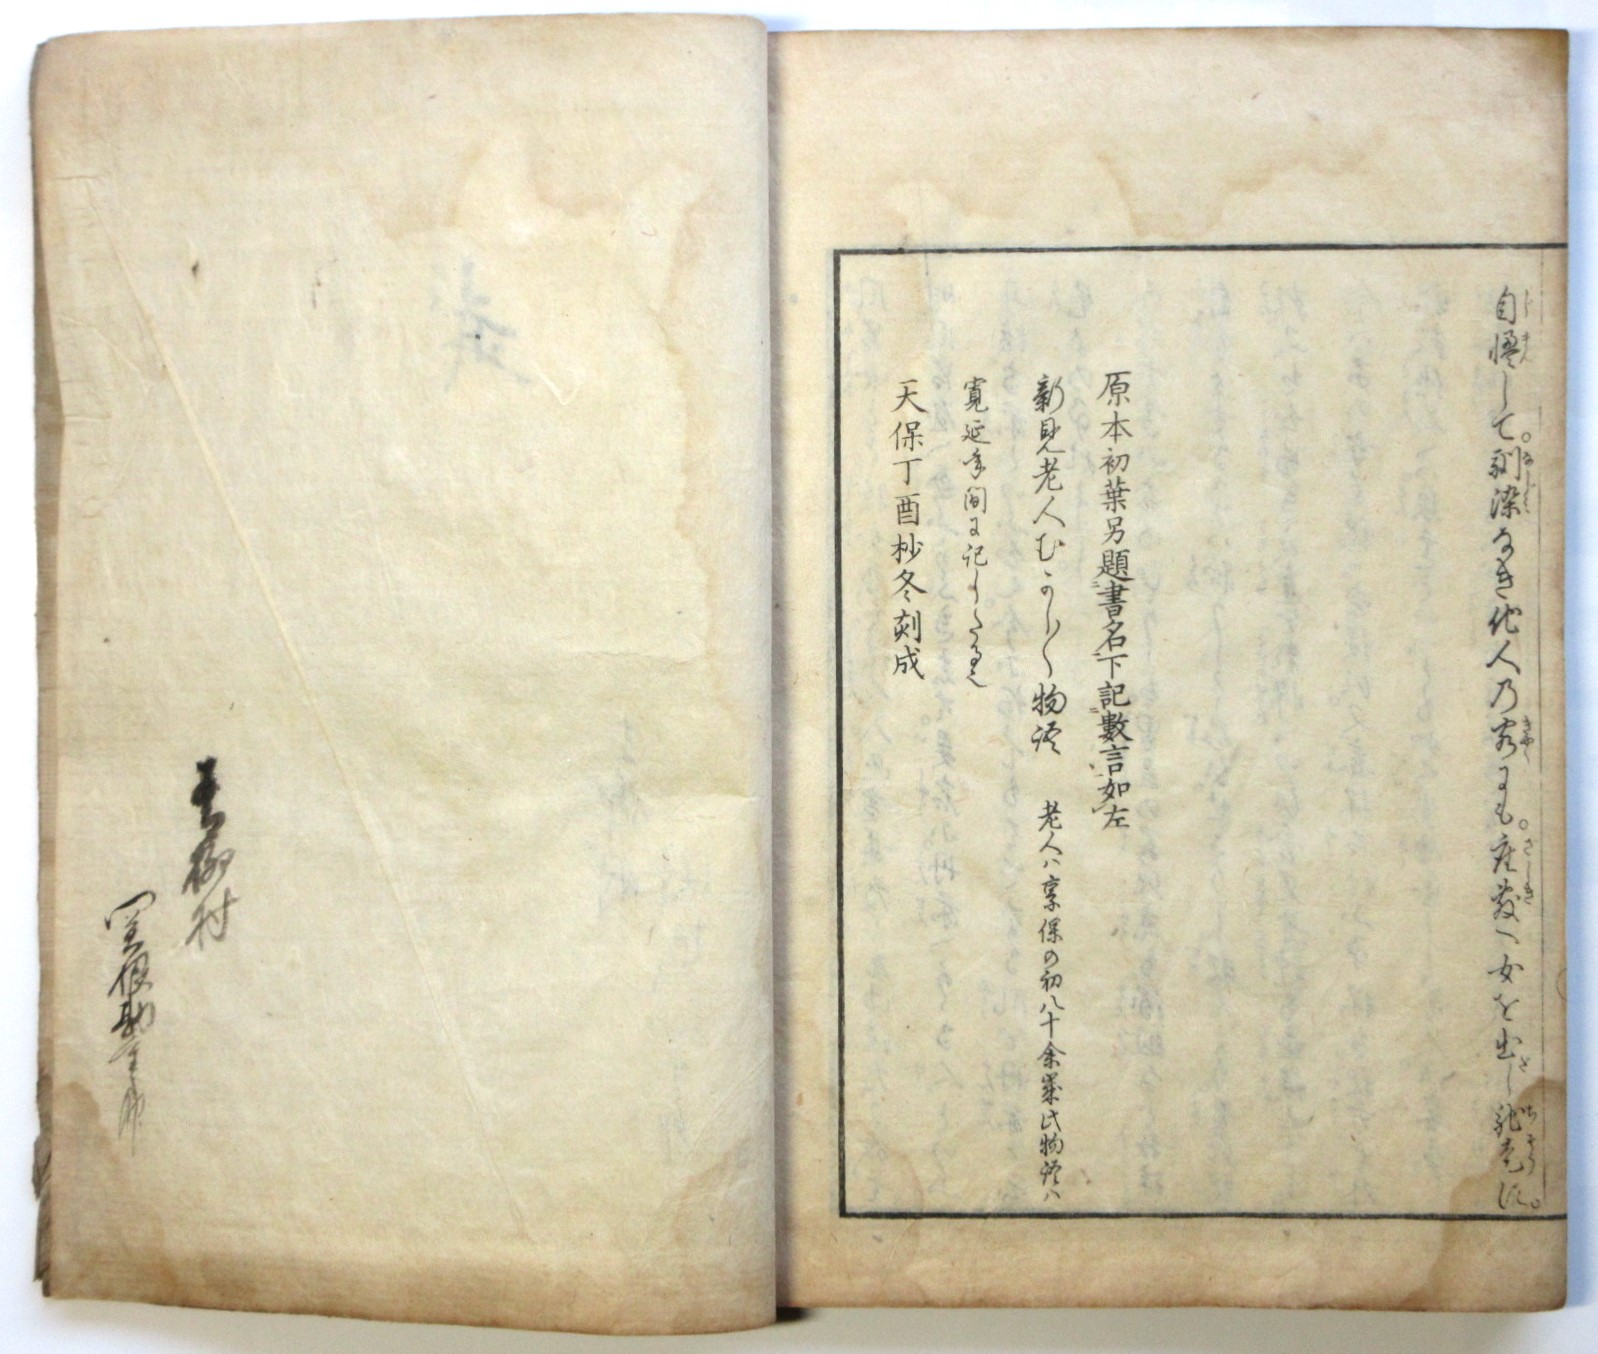 自慢して。馴染なき他人乃客にも。座敷へ女を出し馳走に。
原本初葉另題書名下記數言如左
新見老人むかし〱物語　老人ハ享保の初八十余歳此物語ハ
寛延年間に記しゝ
天保丁酉杪冬刻成
青柳村
関根勘